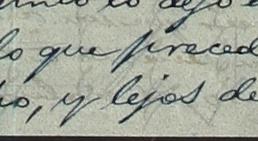 lo dejo
lo que preced
o, y lejos de